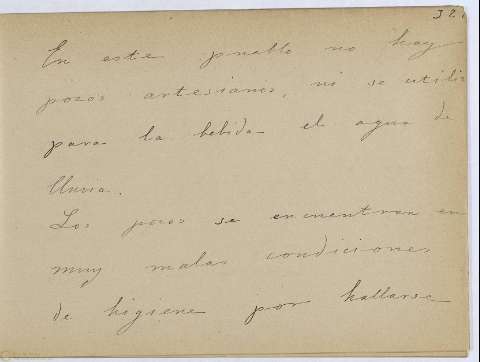 32.
En este pueblo no hay
pozos artesianos, ni se utiliz
para la bebida el agua de
lluvia.
Los pozos se encuentran en
muy malas condiciones
de higiene por hallarse